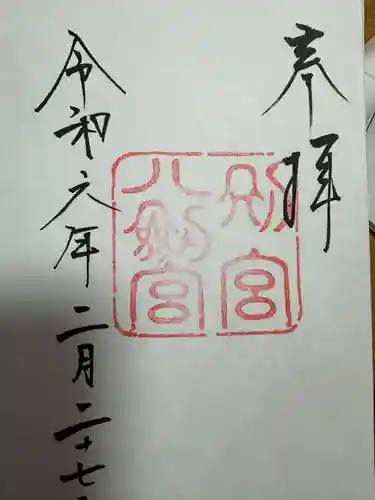 奉拝
別宮
八幡宮
令和六年二月二十七